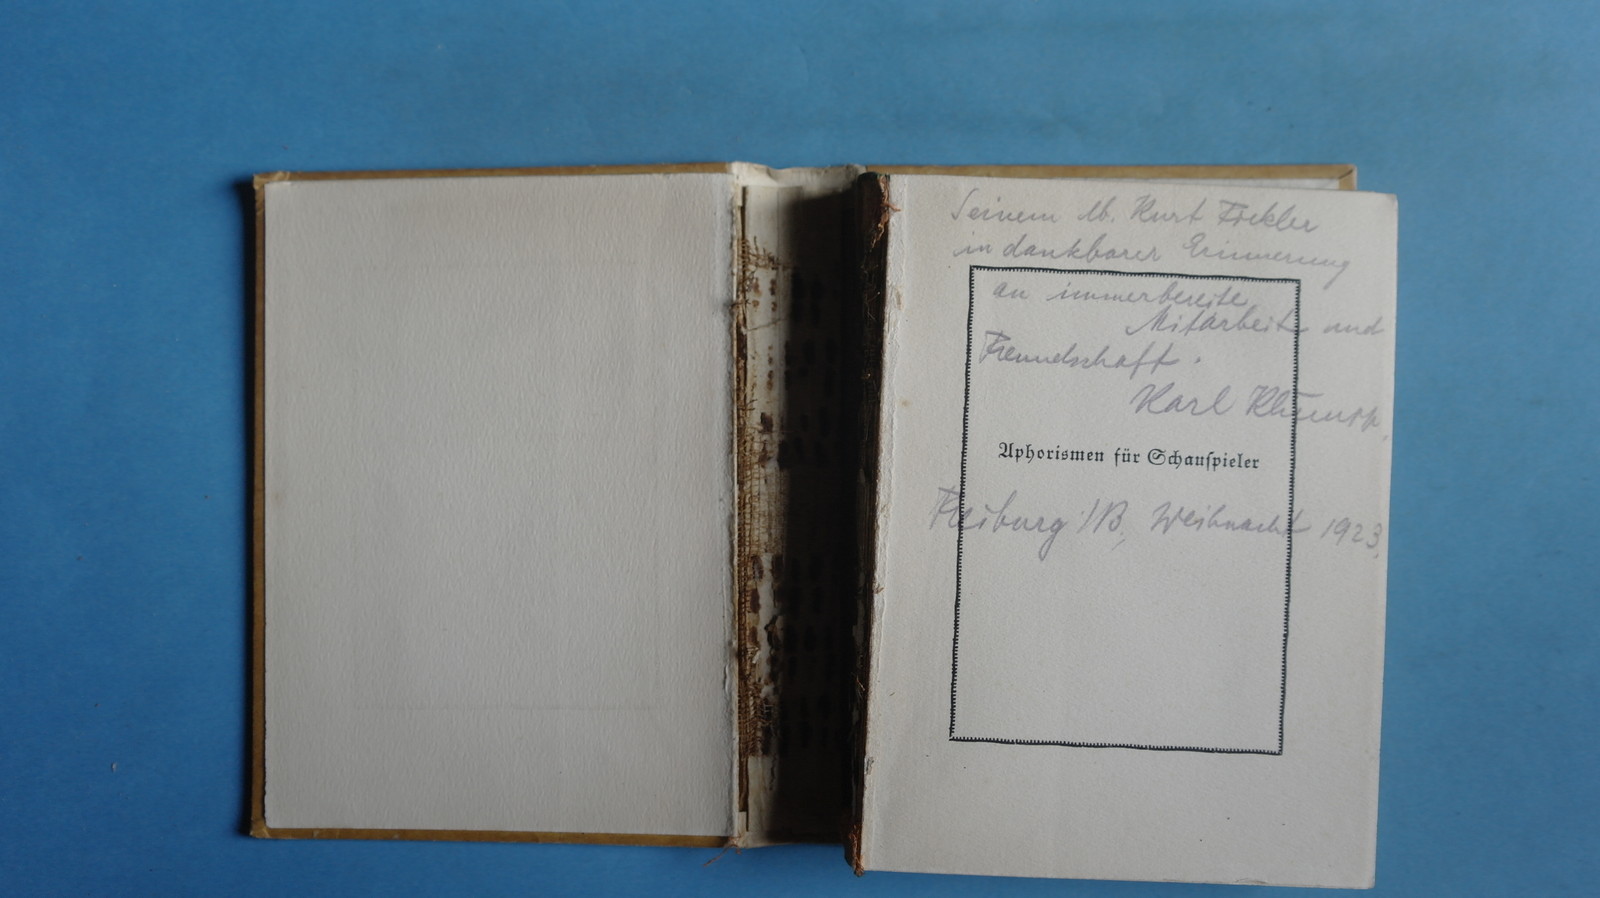 Seinem lb. Kurt Fickler
in dankbarer Erinnerung
an immerbereite
Mitarbeit und
Freundschaft.
Karl
Aphorismen für Schauspieler
Freiburg i/B, Weihnacht 1923.